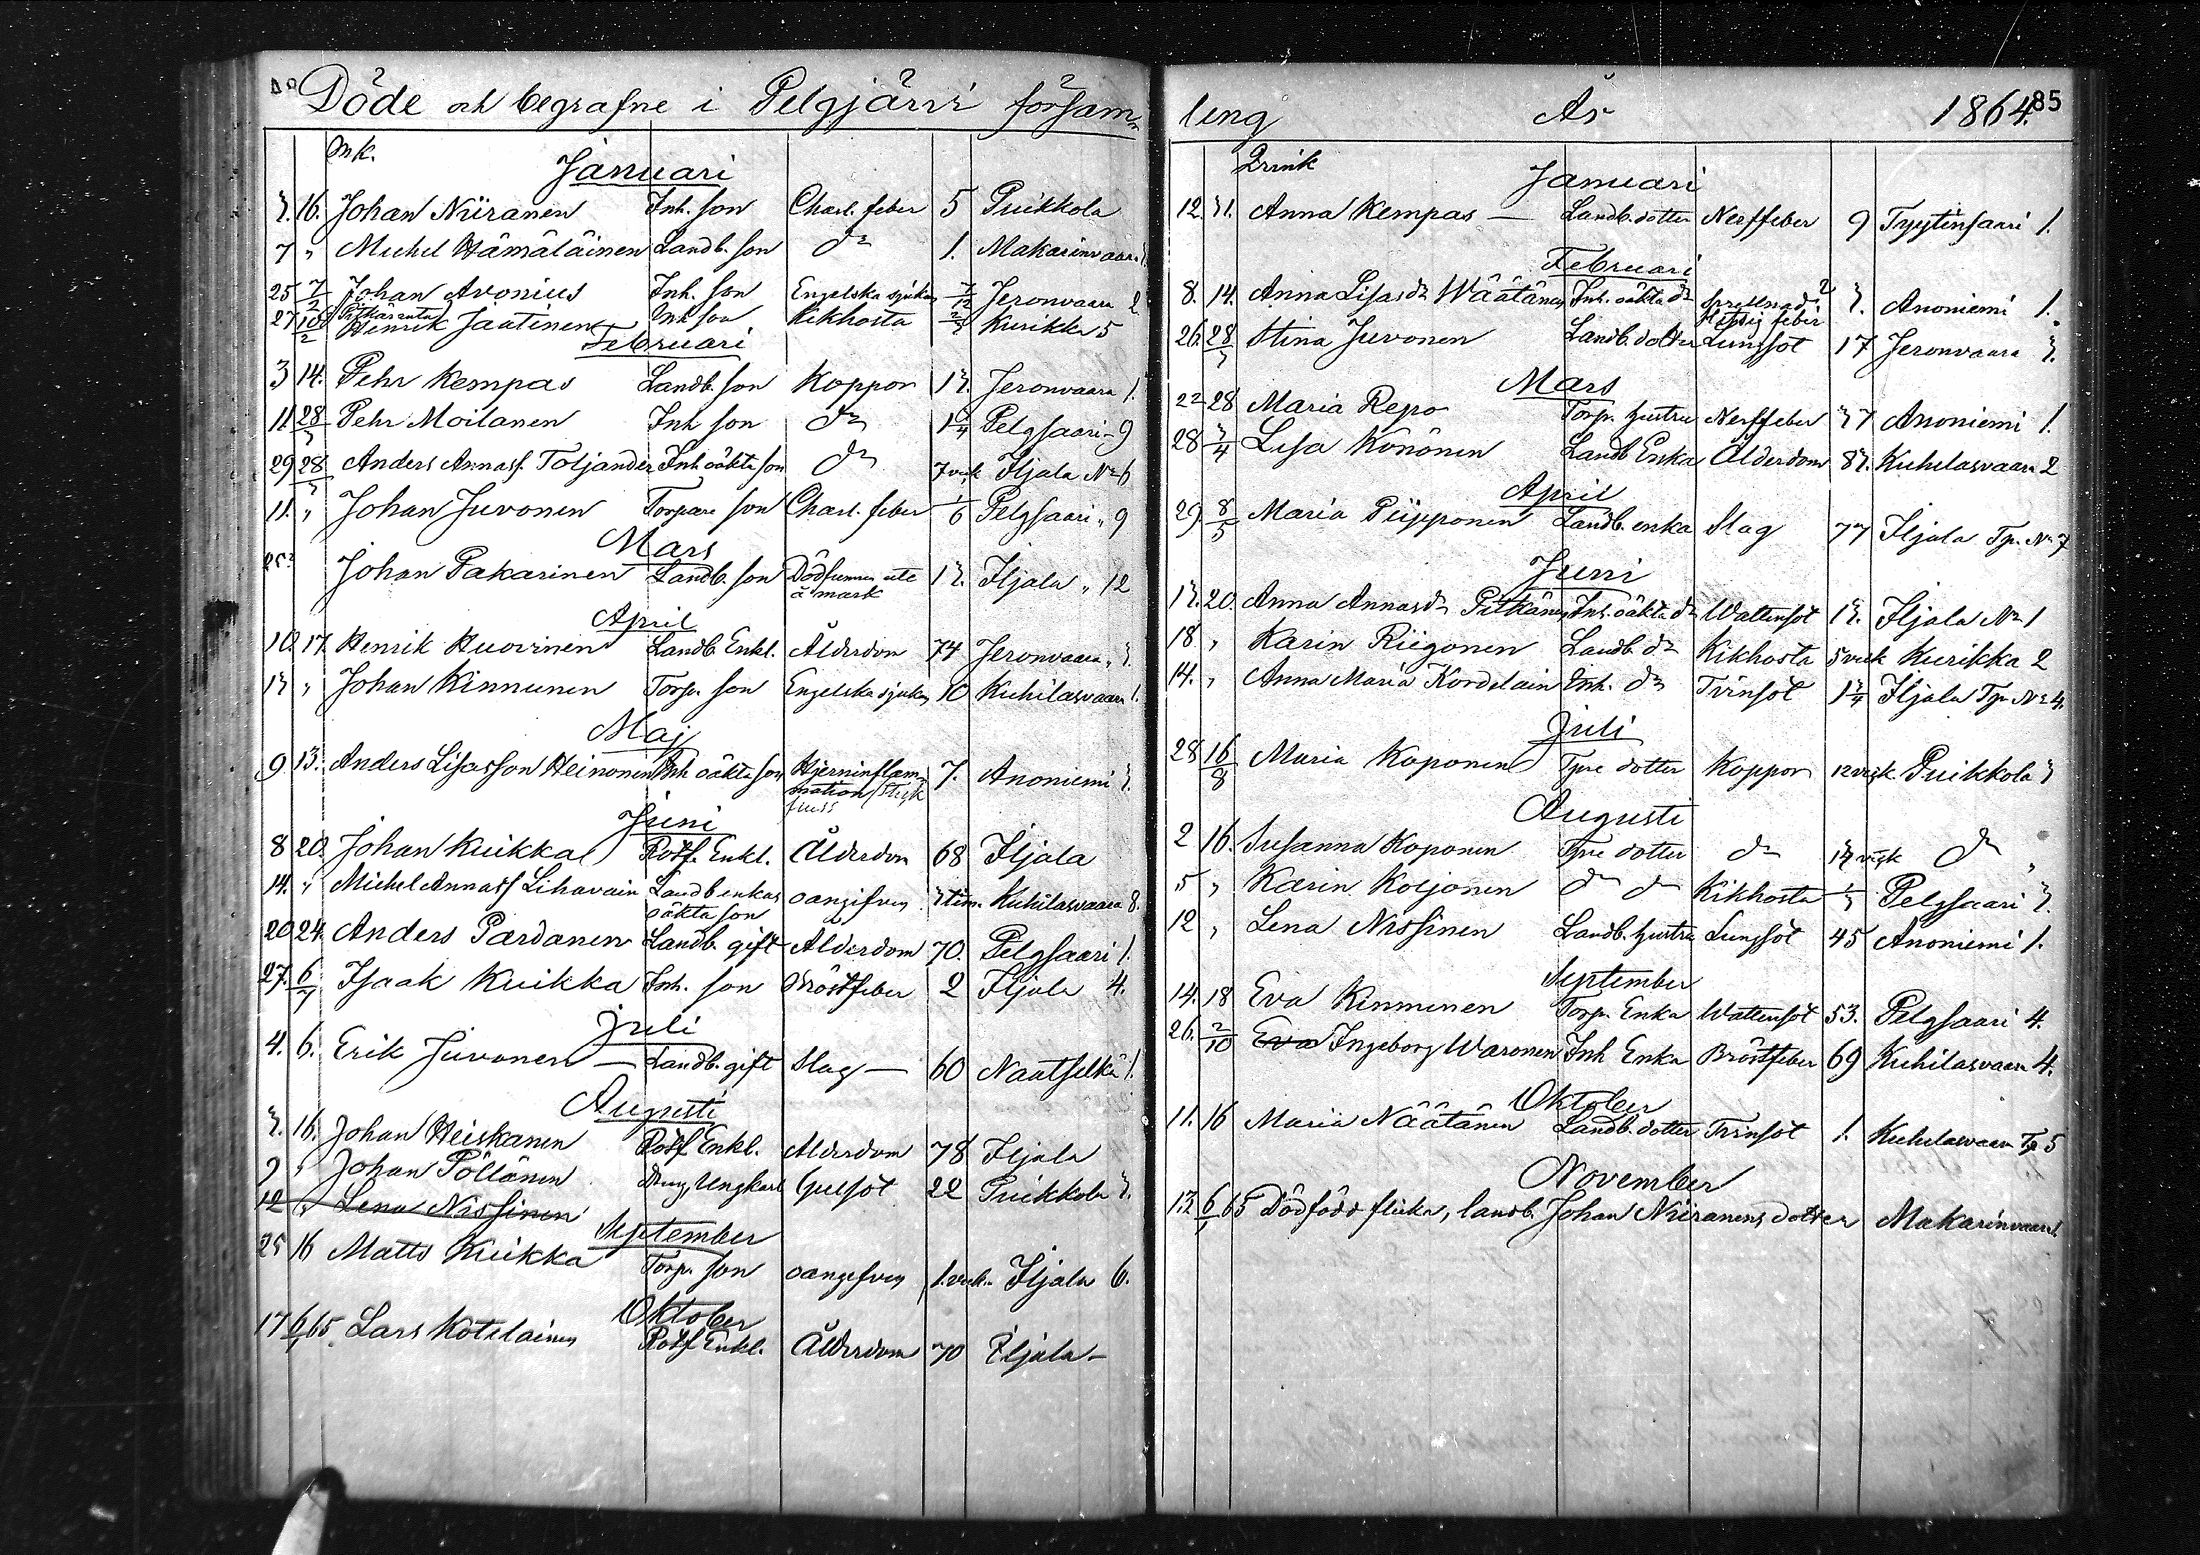 Döde och begrafne i Pelgjärvi församling År 1864. 85
mk.
Januari
3. 16. Johan Niiranen Inh. son Charl. feber 5 Puikkola
7 " Michel Hämäläinen Landb. son do 1. Makarinvaara 1.
25 7/2 Johan Avonius Inh. son Engelska sjukan 7/12 Jeronvaara 2
Pitkäranta
27 10/2 Henrik Jaatinen Inh son Kikhosta Kurikka 5
Februari
3 14. Pehr Kempas Landb. son Koppor 13. Jeronvaara 1.
11 28/3 Pehr Moilanen Inh son do 1 3/4 Pelgsaari - 9
29 28/3 Anders Annass. Toljander Inh oäkta son do 7 veck Iljala No 6
11. " Johan Juvonen Torpare son Charl. feber 1/6 Pelgsaari " 9
Mars
25 Johan Pakarinen Landb. son Dödfunnen ute å mark 13. Iljala " 12
April
10 17 Henrik Huovinen Landb Enkl. Ålderdom 74 Jeronvaara " 3.
13 " Johan Kinnunen Torp. son Engelska sjukan 10 Kuhilasvaara 1.
Maj
9 13. Anders Lisasson Heinonen Inh oäkta son Hjerninflammation 7. Anoniemi 3.
Juni
8 20. Johan Kuikka Rotf. Enkl. Ålderdom 68 Iljala
14. " Michel Annass Lihavain Landb enkas oäkta son oangifven 3 tim. Kuhilasvaara 8.
20 24. Anders Pardanen Landb. gift Ålderdom 70. Pelgsaari 1.
27. 6/7 Isaak Kuikka Inh. son Bröstfeber 2 Iljala 4.
Juli
4. 6. Erik Juvonen — Landb. gift Slag — 60 Naatselkä 1.
Augusti
3. 16. Johan Heiskanen Rotf Enkl. Ålderdom 78 Iljala
9 " Johan Pöllänen Ungkarl Gulsot 22 Puikkola 3.
12 " Lena Nissinen
September
25 16 Matts Kuikka Torp. son oangifven 1. veck. Iljala 6.
Oktober
17 6/1 65 Lars Kotilainen Rotf Enkl. Ålderdom 70 Iljala -
Qvink
Januari
12. 31. Anna Kempas — Landb. dotter Nerffeber 9 Tyytinsaari 1.
Februari
8. 14. Anna Lisas dr Wäätänen Inh. oäkta dr hetsig feber 3. Anoniemi 1.
26. 28/3 Stina Juvonen Landb. dotter Lungsot 17 Jeronvaara 3.
Mars
22 28 Maria Repo Torp. hustru Nerffeber 37 Anoniemi 1.
28 3/4 Lisa Könönen Landb Enka Ålderdom 83. Kuhilasvaara 2
April
29. 8/5 Maria Piipponen Landb. enka Slag 77 Iljala Tp. No 7
Juni
13. 20. Anna Annas dr Pitkänen Inh. oäkta dr Wattensot 13. Iljala No 1
18. " Karin Riigonen Landb. dr Kikhosta 5 veck Kurikka 2
14. " Anna Maria Kordelain Inh. dr Tvinsot 1 3/4 Iljala Tp No 4.
Juli
28 16/8 Maria Koponen Tpre dotter Koppor 12 veck. Puikkola 3
Augusti
2 16. Susanna Koponen Tpre dotter do 13 veck do "
5 " Karin Koljonen do do Kikhosta Pelgsaari 3.
12 " Lena Nissinen Landb. hustru Lungsot 45 Anoniemi 1.
September
14. 18 Eva Kinnunen Torp. Enka Wattensot 53. Pelgsaari 4.
26. 2/10 Eva Ingeborg Waronen Inh Enka Bröstfeber 69 Kuhilasvaara 4.
Oktober
11. 16 Maria Näätänen Landb. dotter Tvinsot 1. Kuhilasvaara Tp 5
November
13. 6/1 65 Dödfödd flicka, landb. Johan Niiranens dotter Makarinvaara 1